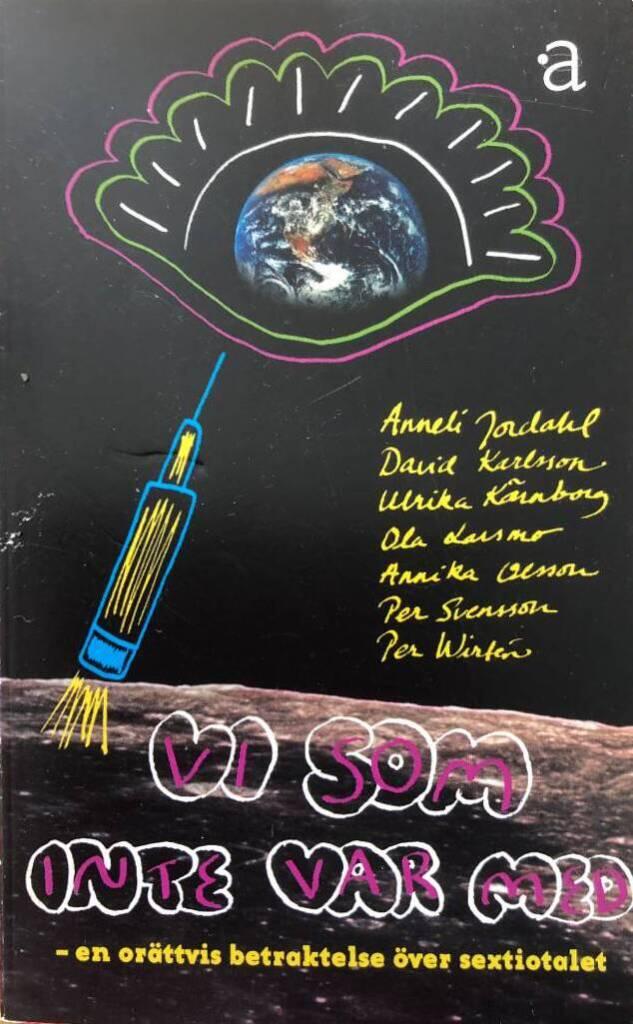 a
Anneli Jordahl
David Karlsson
Ulrika Kärnborg
Ola Larsmo
Annika Olsson
Per Svensson
Per Wirtén
VI SOM
INTE VAR MED
– en orättvis betraktelse över sextiotalet